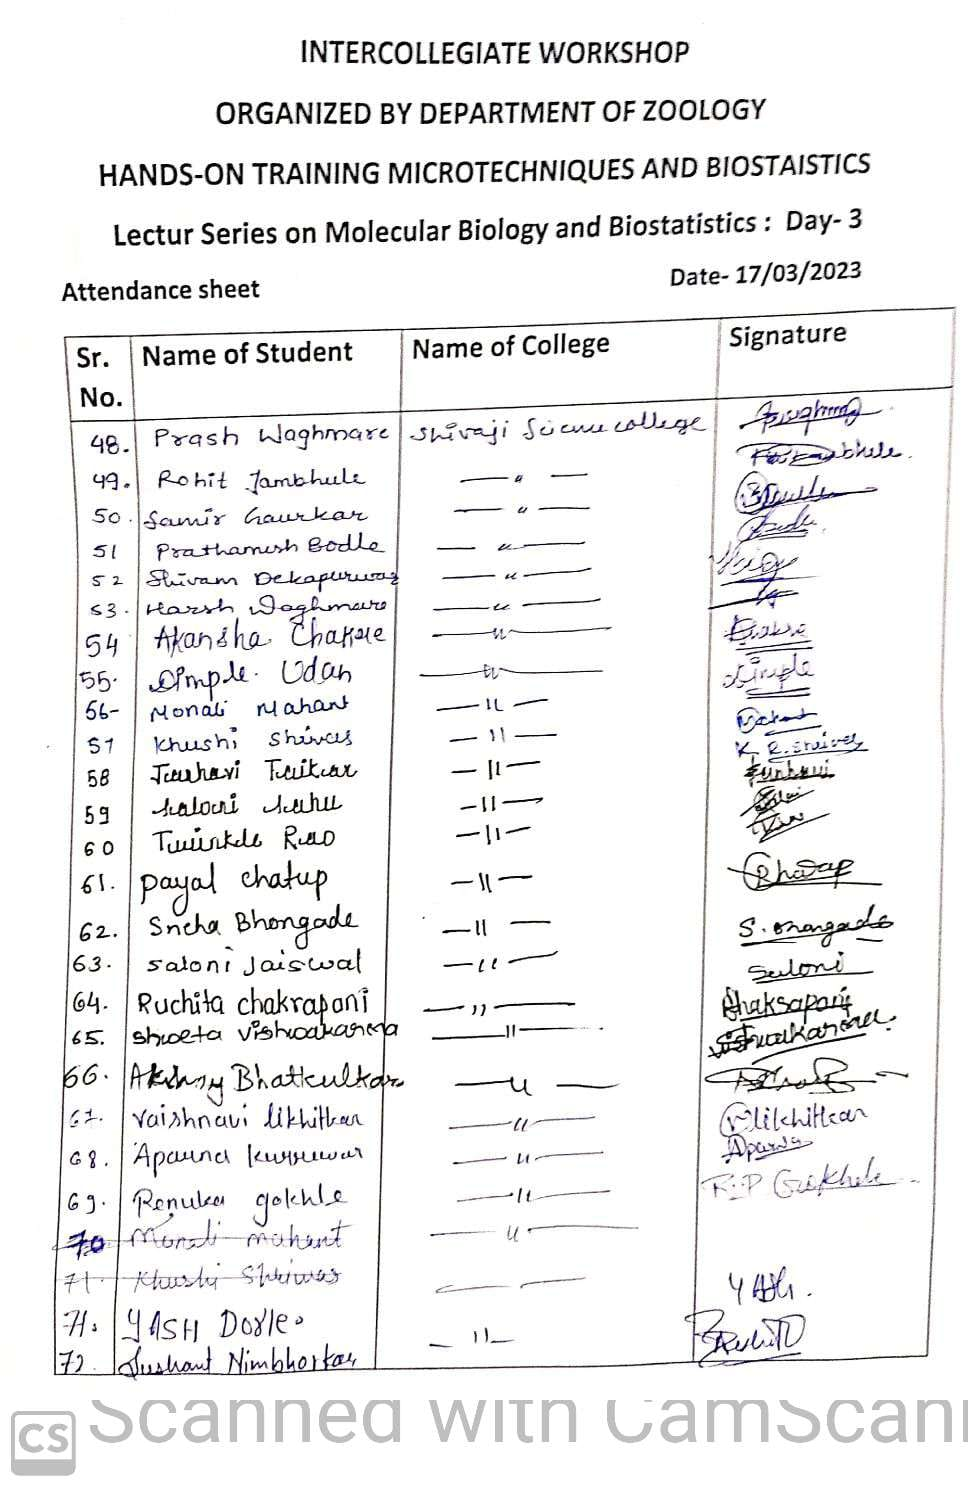 INTERCOLLEGIATE WORKSHOP
ORGANIZED BY DEPARTMENT OF ZOOLOGY
HANDS-ON TRAINING MICROTECHNIQUES AND BIOSTAISTICS
Lectur Series on Molecular Biology and Biostatistics : Day- 3
Attendance sheet Date- 17/03/2023
Sr. No. Name of Student Name of College Signature
48. Prash Waghmare Shivaji Science college
49. Rohit Jambhule — " —
50. Samir Gaurkar — " —
51 Prathamesh Bodle — " —
52 Shivam Dekapurwar — " —
53. Harsh Waghmare — " —
54 Akansha Chakole — " —
55. Dimple Udan — " — Dimple
56- Monali Mahant — " — Mahant
57 Khushi Shivas — " — K. R. Shivas
58 — " —
59 Saloni Sahu — " —
60 Twinkle Rao — " —
61. Payal chatup — " —
62. Sneha Bhongade — " — S. Bhongade
63. Saloni Jaiswal — " — Saloni
64. Ruchita chakrapani — " —
65. Shweta vishwakarma — " — Vishwakarma
66. Akshay Bhatkulkar — " —
67. Vaishnavi likhitkar — " — Vlikhitkar
68. Aparna — " — Aparna
69. Renuka gokhle — " — R.P Gokhale
70 Monali mahant — " —
71. Khushi Shriwas — —
71. YASH Dorle. YASH.
72. Sushant Nimbhorkar — " —
CS Scanned with CamScann